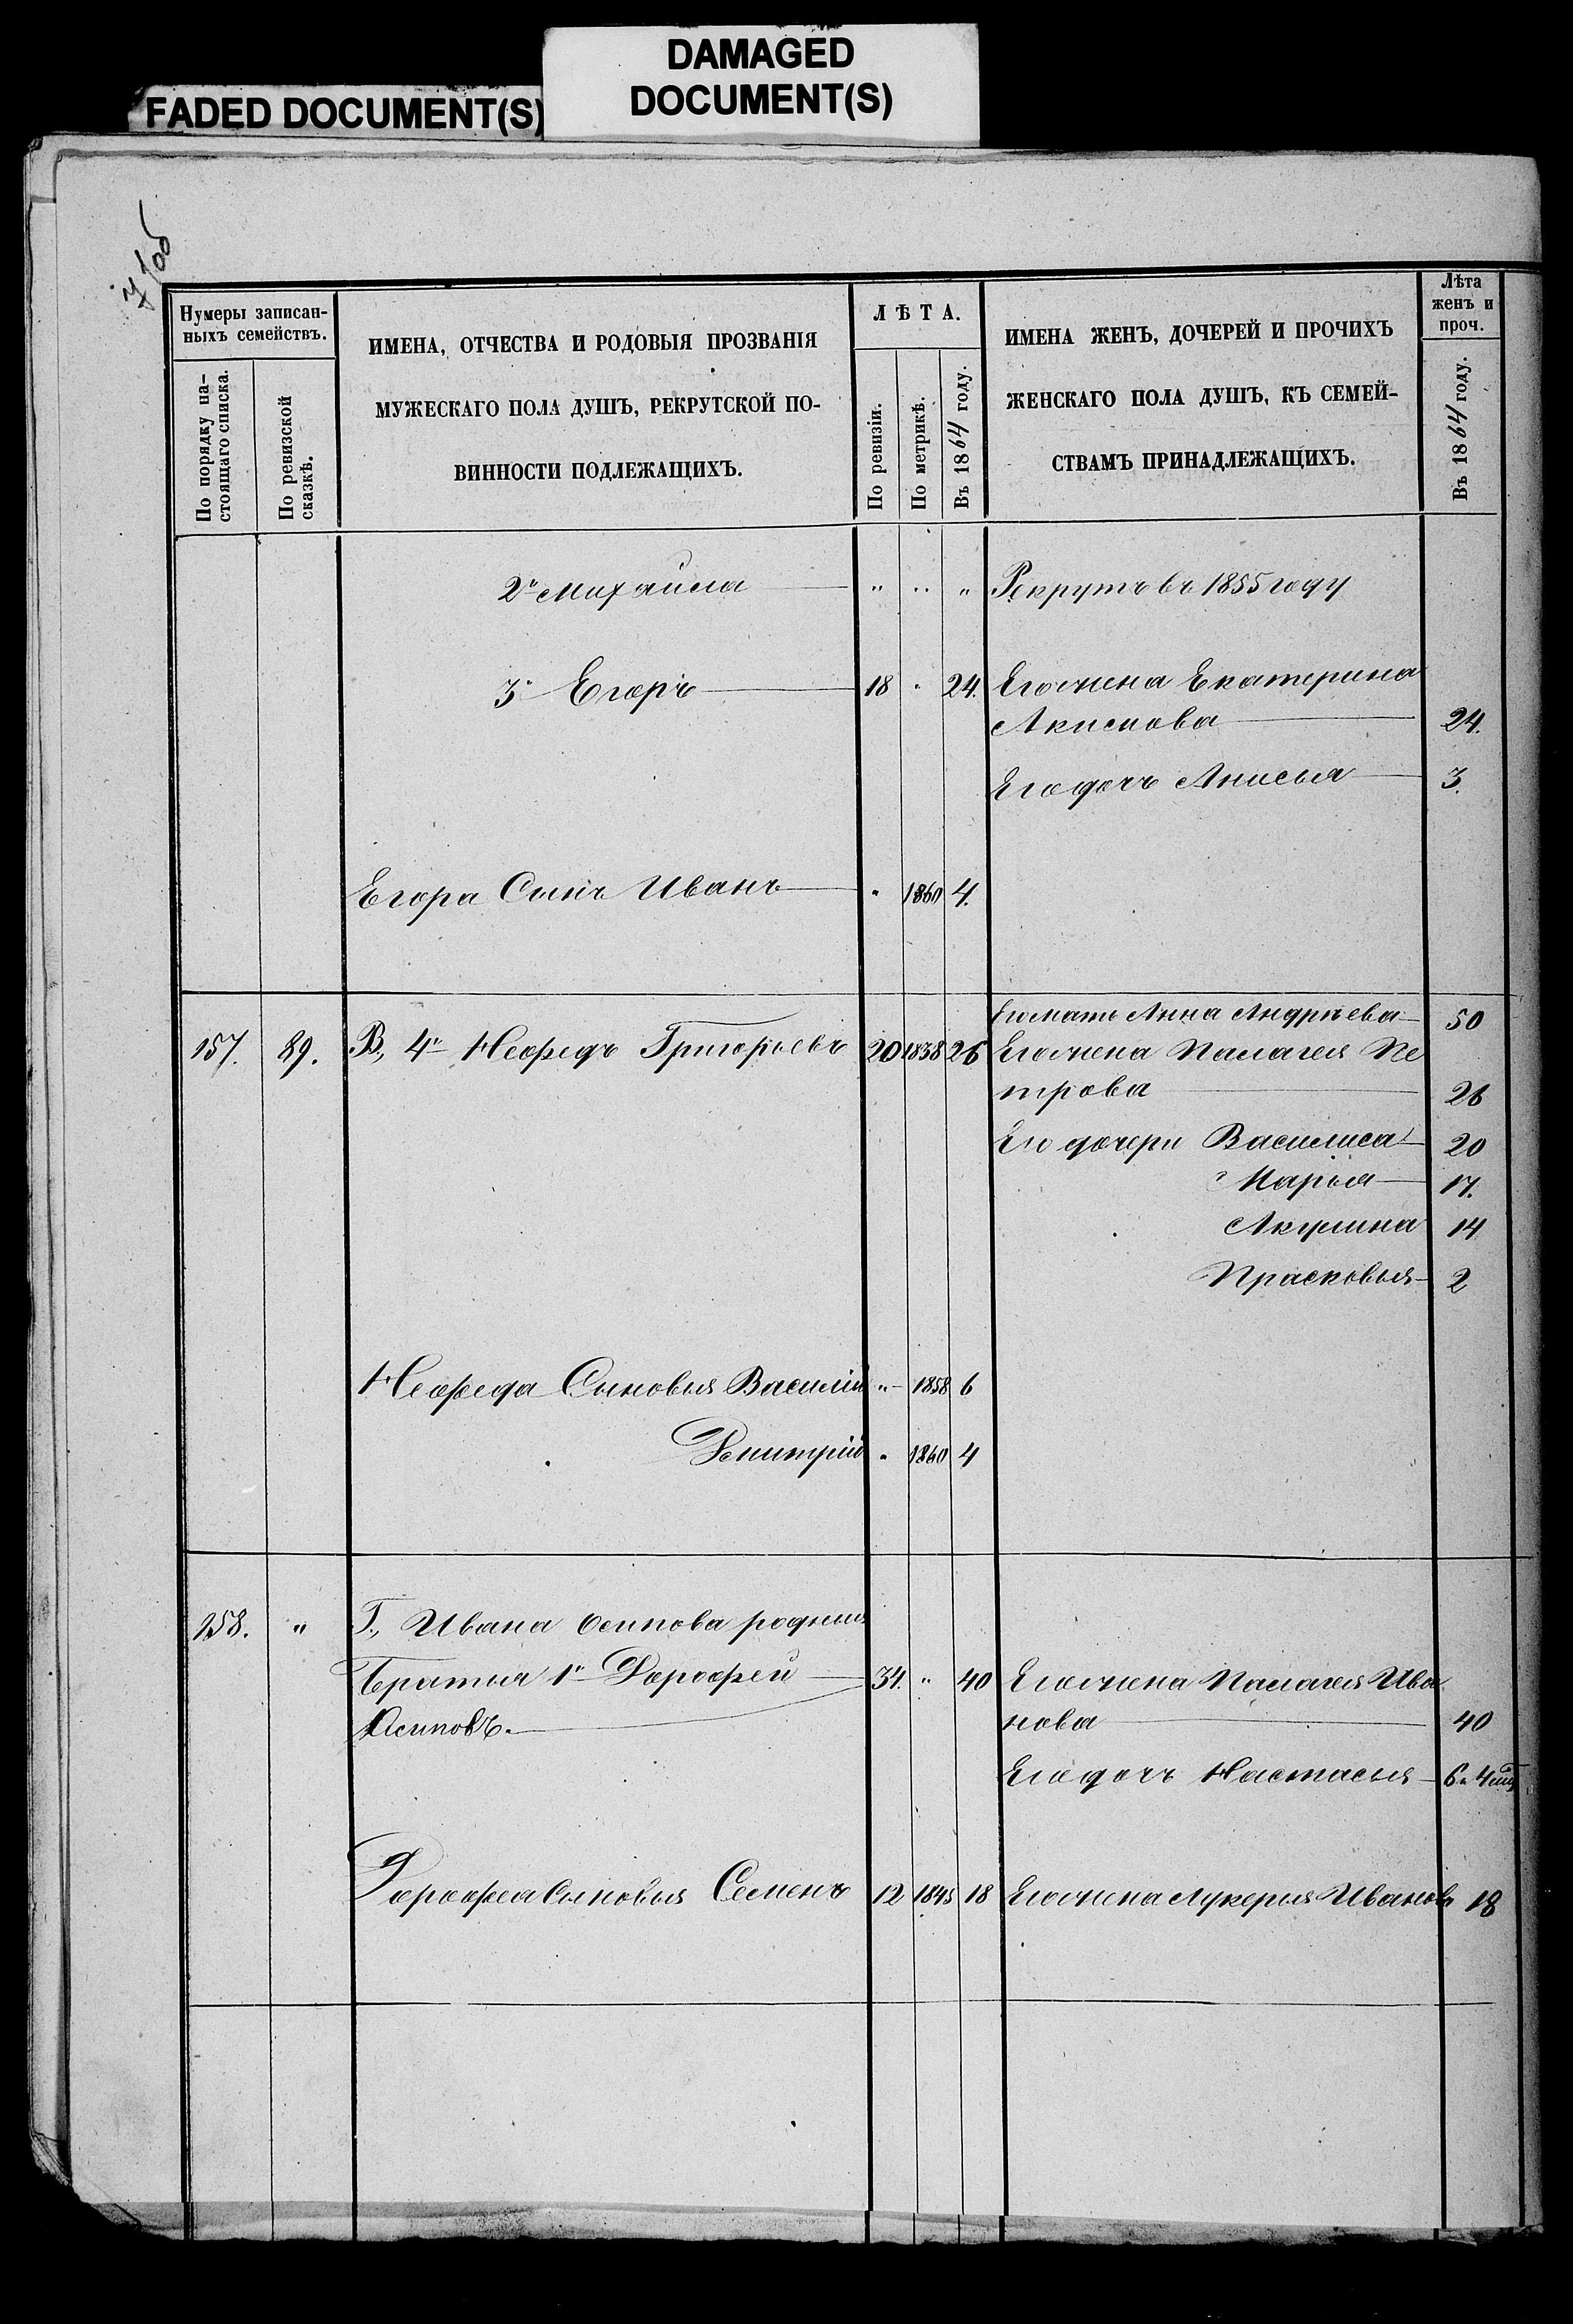 FADED DOCUMENT(S)
DAMAGED
DOCUMENT(S)
Нумеры записан-
ныхъ семействъ.
По порядку на-
стоящаго списка.
По ревизской
сказкѣ.
ИМЕНА, ОТЧЕСТВА И РОДОВЫЯ ПРОЗВАНІЯ
МУЖЕСКАГО ПОЛА ДУШЪ, РЕКРУТСКОЙ ПО-
ВИННОСТИ ПОДЛЕЖАЩИХЪ.
ЛѢТА.
По ревизіи.
По метрикѣ.
Въ 1864 году.
ИМЕНА ЖЕНЪ, ДОЧЕРЕЙ И ПРОЧИХЪ
ЖЕНСКАГО ПОЛА ДУШЪ, КЪ СЕМЕЙ-
СТВАМЪ ПРИНАДЛЕЖАЩИХЪ.
Лѣта
женъ и
проч.
Въ 1864 году.
2й Михайла " " " Рекрутъ въ 1855 году
3й Егоръ 18 " 24. Его жена Екатерина
Акимова 24.
Его дочь Анисья 3.
Егора Сынъ Иванъ " 1860 4.
Его мать Анна Андрѣева 50
157. 89. В, 4й Неофедъ Григорьевъ 20 1838 26 Его жена Палагея Пе
трова 26
Его дочери Василиса 20
Марья 17.
Акулина 14
Прасковья 2
Неофеда Сыновья Василій " 1858 6
Дмитрій " 1860 4
158. " Г, Ивана Осипова родные
Братья 1й Дорофей 34. " 40 Его жена Палагея Ива
Осиповъ. нова 40
Его дочь Настасья 6 " 4
Дорофея Сыновья Семенъ 12 1845 18 Его жена Лукерья Иванова 18